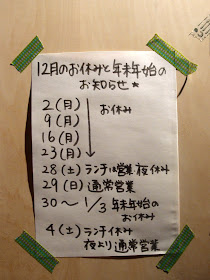 12月のお休みと年末年始の
お知らせ★
2(月) お休み
9(月)
16(月)
23(月)
28(土) ランチは営業 夜休み
29(日) 通常営業
30〜1/3 年末年始の
お休み
4(土) ランチ休み
夜より通常営業